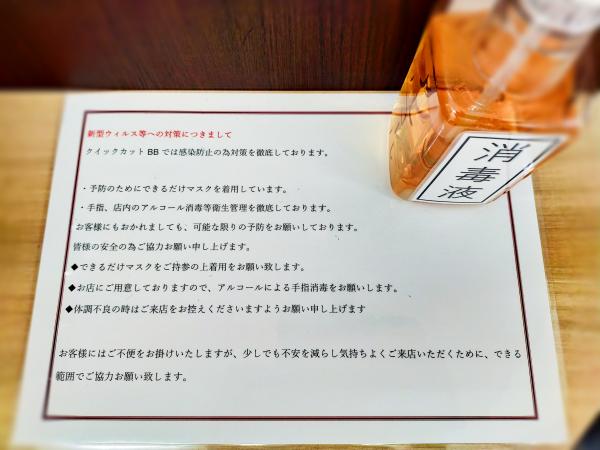 新型ウィルス等への対策につきまして
クイックカット BB では感染防止の為対策を徹底しております。
・予防のためにできるだけマスクを着用しています。
・手指、店内のアルコール消毒等衛生管理を徹底しております。
お客様にもおかれましても、可能な限りの予防をお願いしております。
皆様の安全の為ご協力お願い申し上げます。
◆できるだけマスクをご持参の上着用をお願い致します。
◆お店にご用意しておりますので、アルコールによる手指消毒をお願いします。
◆体調不良の時はご来店をお控えくださいますようお願い申し上げます
お客様にはご不便をお掛けいたしますが、少しでも不安を減らし気持ちよくご来店いただくために、できる
範囲でご協力お願い致します。
消毒液